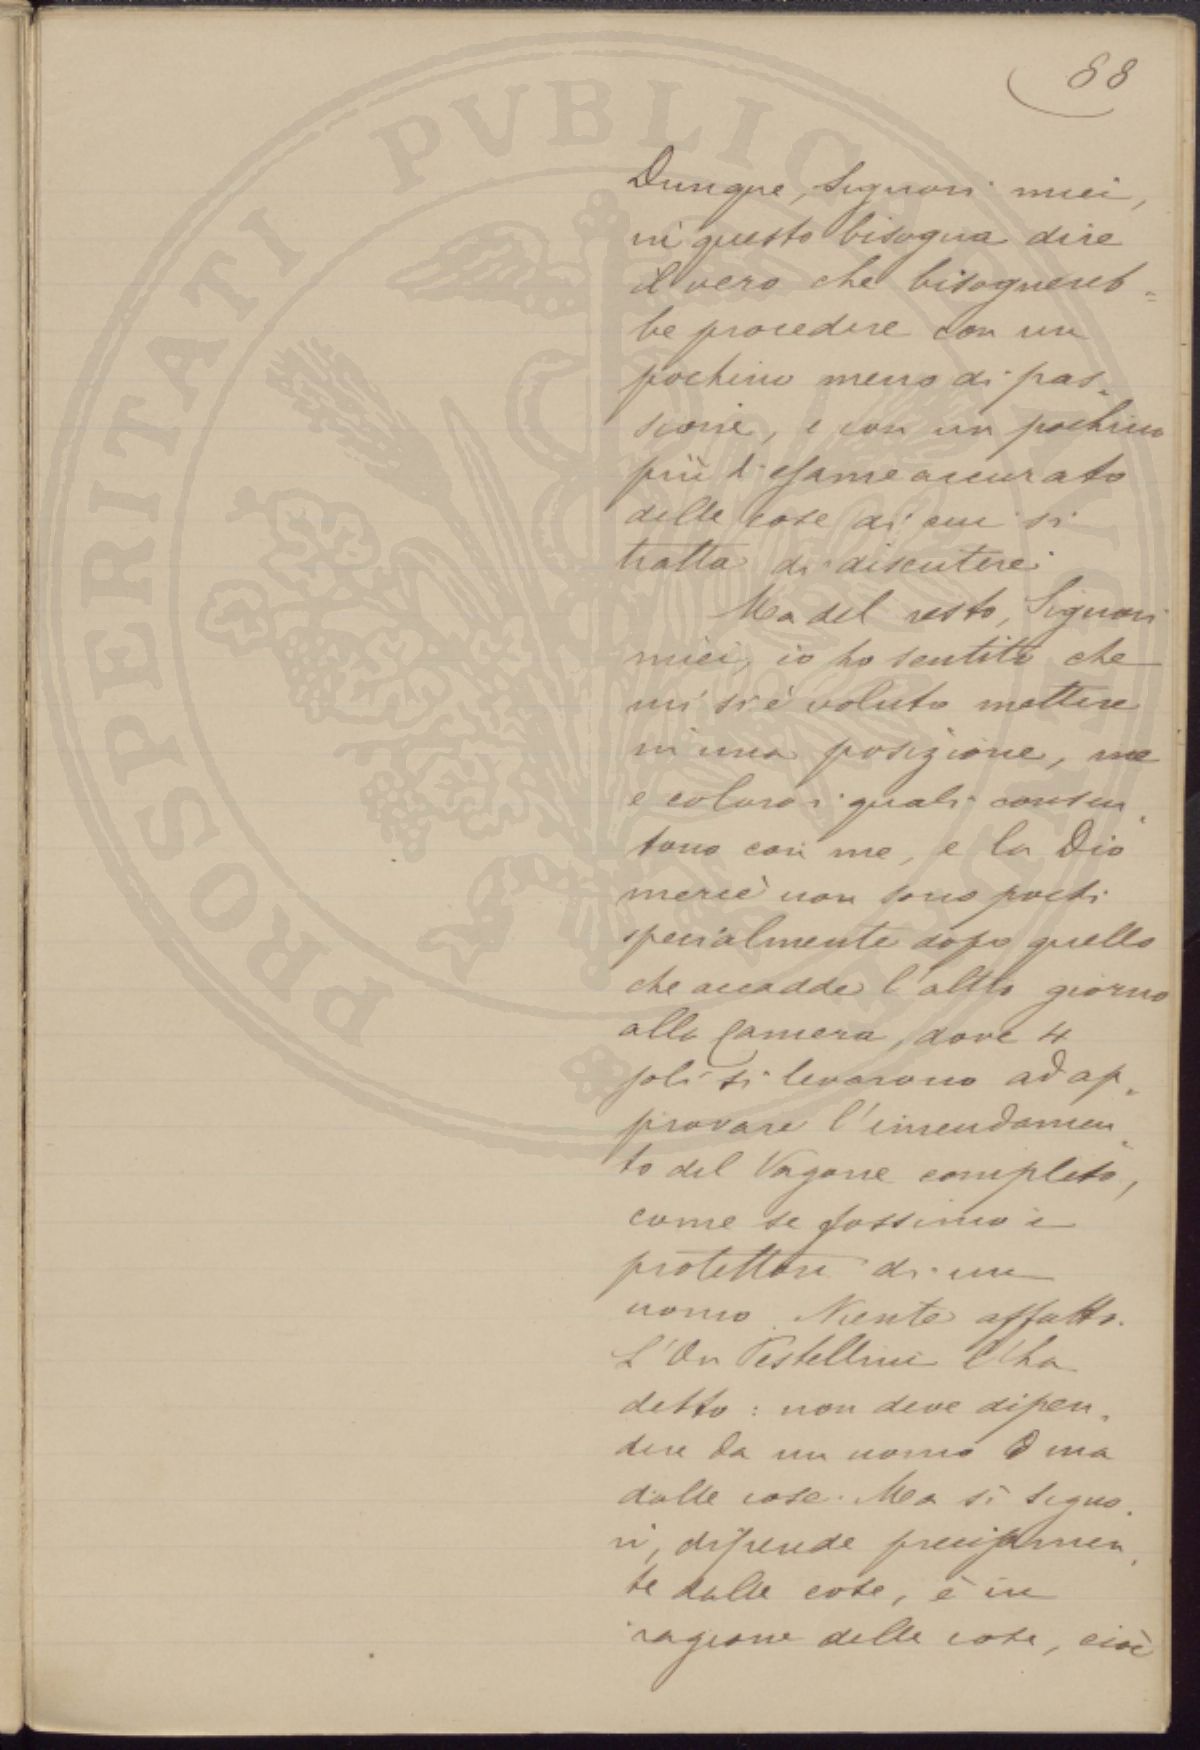 88
Dunque, Signori miei,
in questo bisogna dire
il vero che bisognereb=
be procedere con un
pochino meno di pas-
sione, e con un pochino
più d'esame accurato
delle cose di cui si
tratta di discutere.
Ma del resto, Signori
miei, io ho sentito che
mi si è voluto mettere
in una posizione, me
e coloro i quali consen-
tono con me, e la Dio
mercè non sono pochi
specialmente dopo quello
che accadde l'altro giorno
alla Camera, dove 4
soli si levarono ad ap-
provare l'emendamen-
to del Vagone completo,
come se fossimo i
protettori di un
uomo. Niente affatto.
L'On Pestellini l'ha
detto: non deve dipen-
dere da un uomo ma
dalle cose. Ma sì Signo-
ri, dipende precisamen-
te dalle cose, è in
ragione delle cose, cioè
PROSPERITATI PVBLICAE